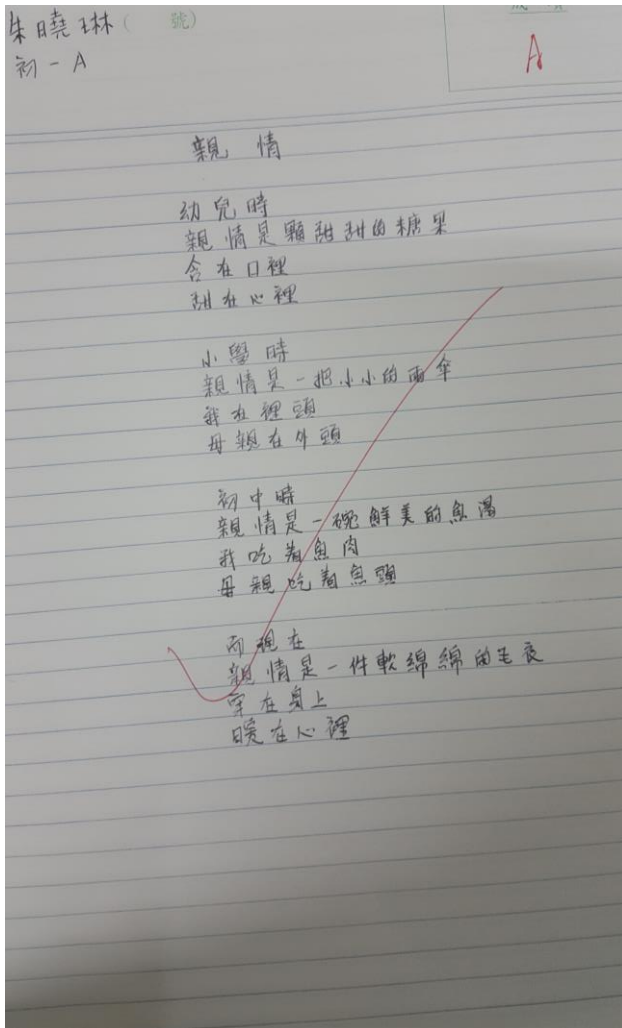 朱曉琳( 號)
初一A
成績
A
親情
幼兒時
親情是顆甜甜的糖果
含在口裡
甜在心裡
小學時
親情是一把小小的雨傘
我在裡頭
母親在外頭
初中時
親情是一碗鮮美的魚湯
我吃着魚肉
母親吃着魚頭
而現在
親情是一件軟綿綿的毛衣
穿在身上
暖在心裡